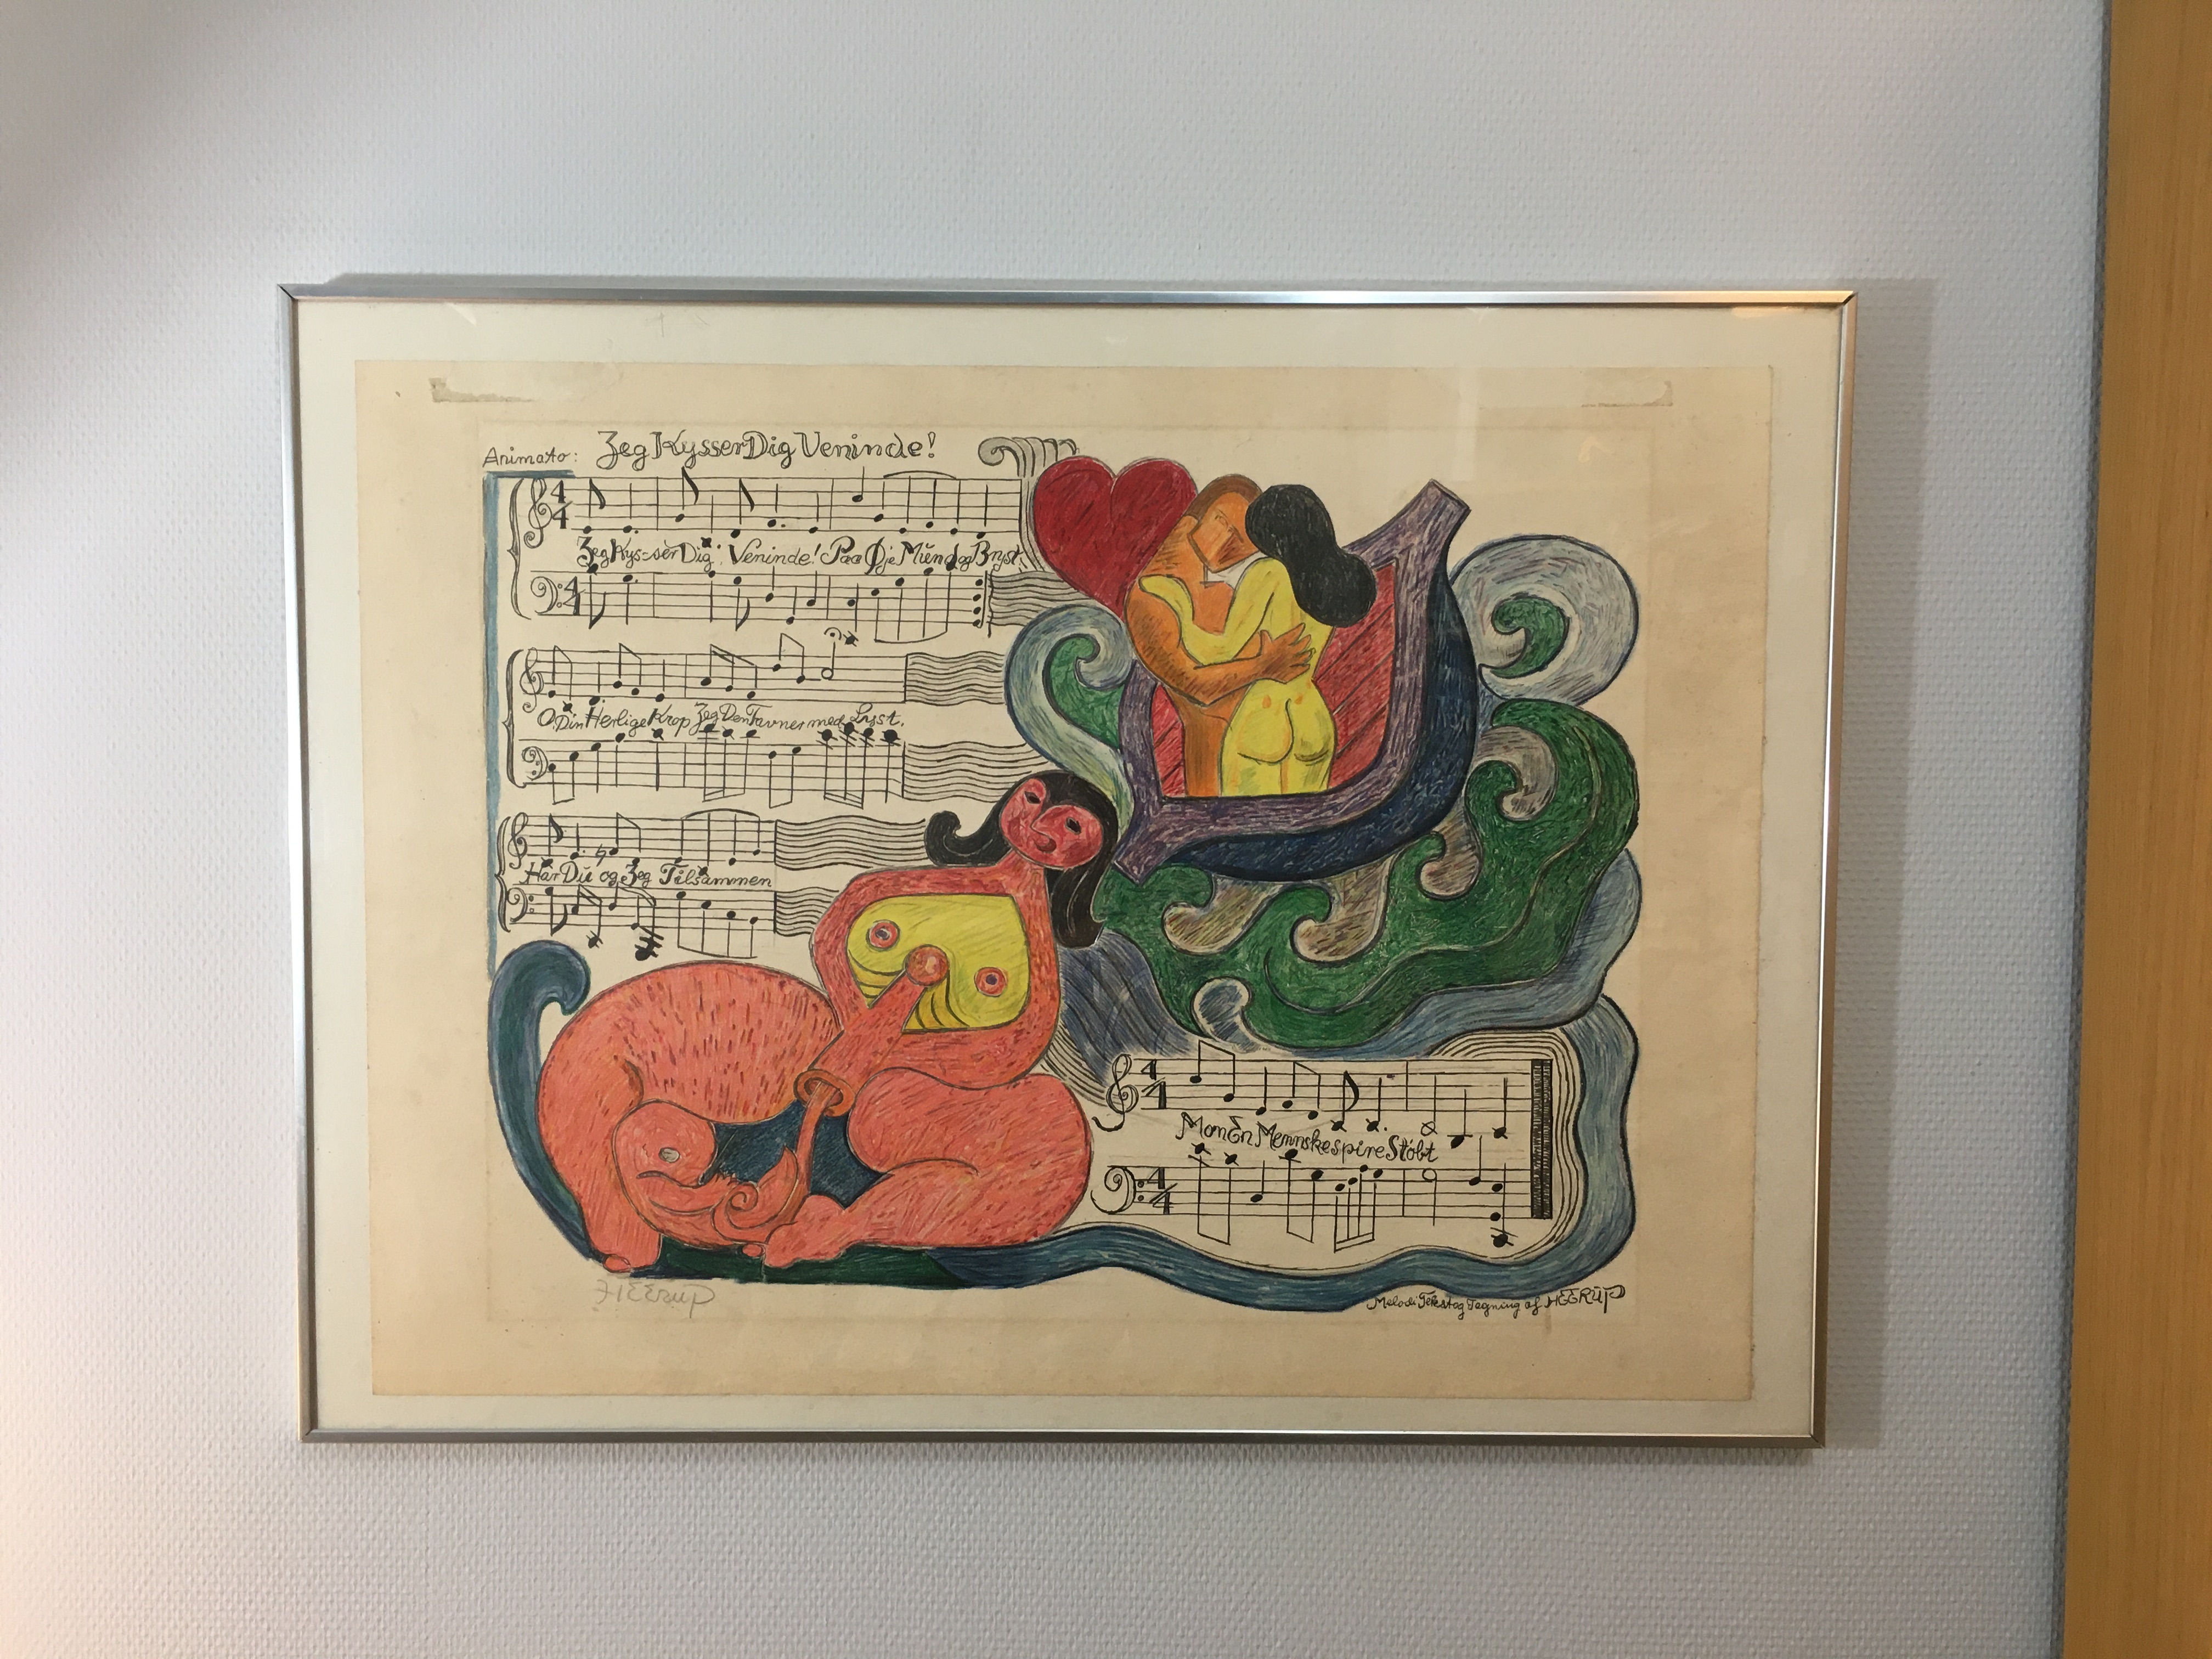 Animato: Jeg Kysser Dig Veninde!
4
4
Jeg Kys=ser Dig. Veninde! Paa Øje Mund og Bryst.
4
4
O Din Herlige Krop Jeg Den Favner med Lyst.
Har Du og Jeg Tilsammen
4
4
Mon En Mennskespire Støbt
4
4
HEErup
Melodi Tekst og Tegning af HEERUP